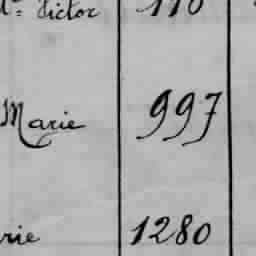 Victor 110
Marie 997
rie 1280